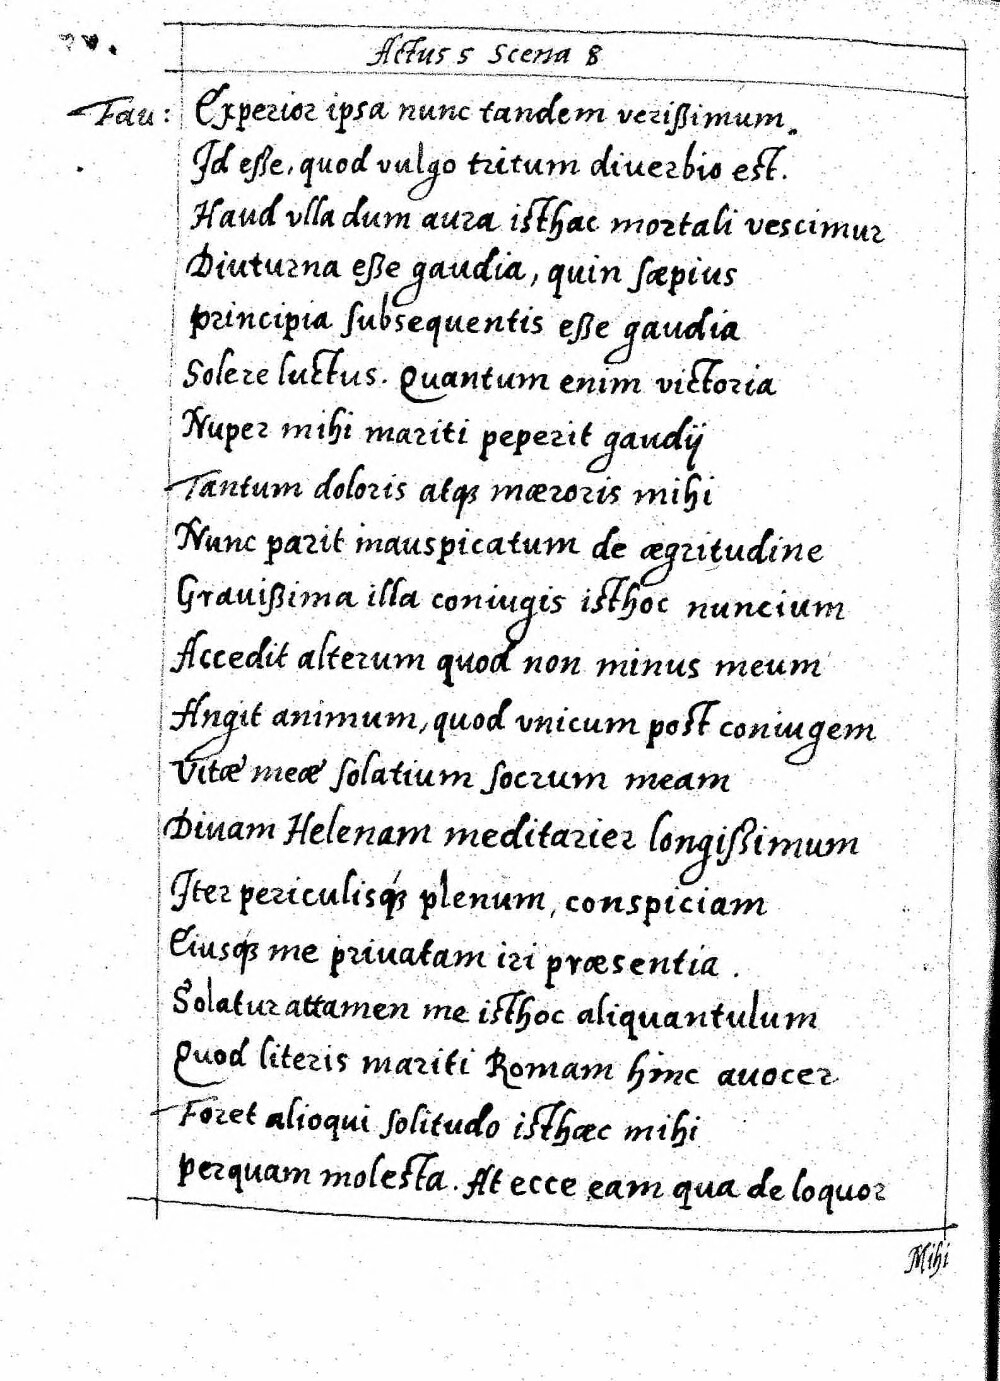 Actus 5 Scena 8
Fau: Experior ipsa nunc tandem verißimum.
Id eße, quod vulgo tritum diuerbio est.
Haud vlla dum aura isthac mortali vescimur
Diuturna eße gaudia, quin sæpius
principia subsequentis eße gaudia
Solere luctus. Quantum enim victoria
Nuper mihi mariti peperit gaudij
Tantum doloris atqꝫ mæroris mihi
Nunc parit inauspicatum de ægritudine
Grauißima illa coniugis isthoc nuncium
Accedit alterum quod non minus meum
Angit animum, quod vnicum post coniugem
Vitæ meæ solatium socrum meam
Diuam Helenam meditarier longißimum
Iter periculisqꝫ plenum, conspiciam
Eiusqꝫ me priuatam iri præsentia.
Solatur attamen me isthoc aliquantulum
Quod literis mariti Romam hinc auocer
Foret alioqui solitudo isthæc mihi
perquam molesta. At ecce eam qua de loquor
Mihi